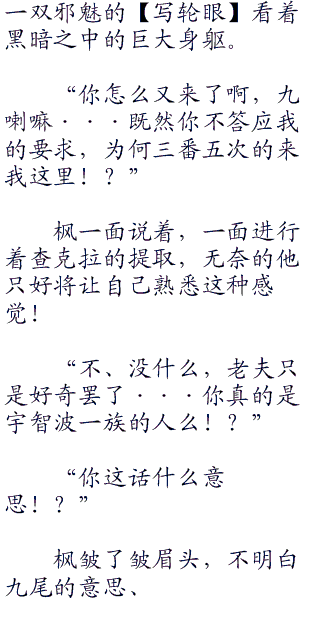 一双邪魅的【写轮眼】看着
黑暗之中的巨大身躯。
“你怎么又来了啊，九
喇嘛···既然你不答应我
的要求，为何三番五次的来
我这里！？”
枫一面说着，一面进行
着查克拉的提取，无奈的他
只好将让自己熟悉这种感
觉！
“不、没什么，老夫只
是好奇罢了···你真的是
宇智波一族的人么！？”
“你这话什么意
思！？”
枫皱了皱眉头，不明白
九尾的意思、